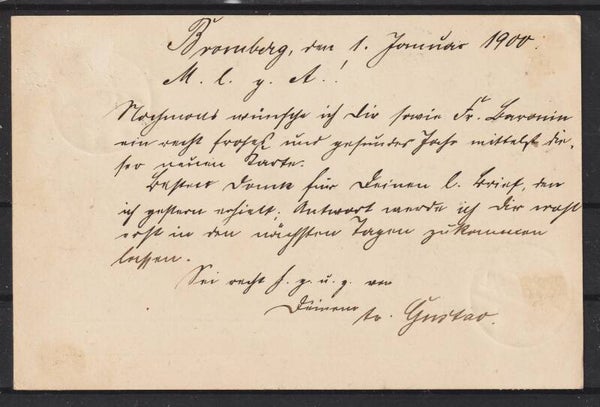 Bromberg, den 1. Januar 1900.
M. l. g. A.!
Nochmals wünsche ich Dir sowie Fr. Baronin
ein recht frohes und gesundes Jahr mittelst die-
ser neuen Karte.
Besten Dank für Deinen l. Brief, den
ich gestern erhielt; Antwort werde ich Dir wohl
erst in den nächsten Tagen zukommen
lassen.
Sei recht h. g. u. g. von
Deinem
tr. Gustav.